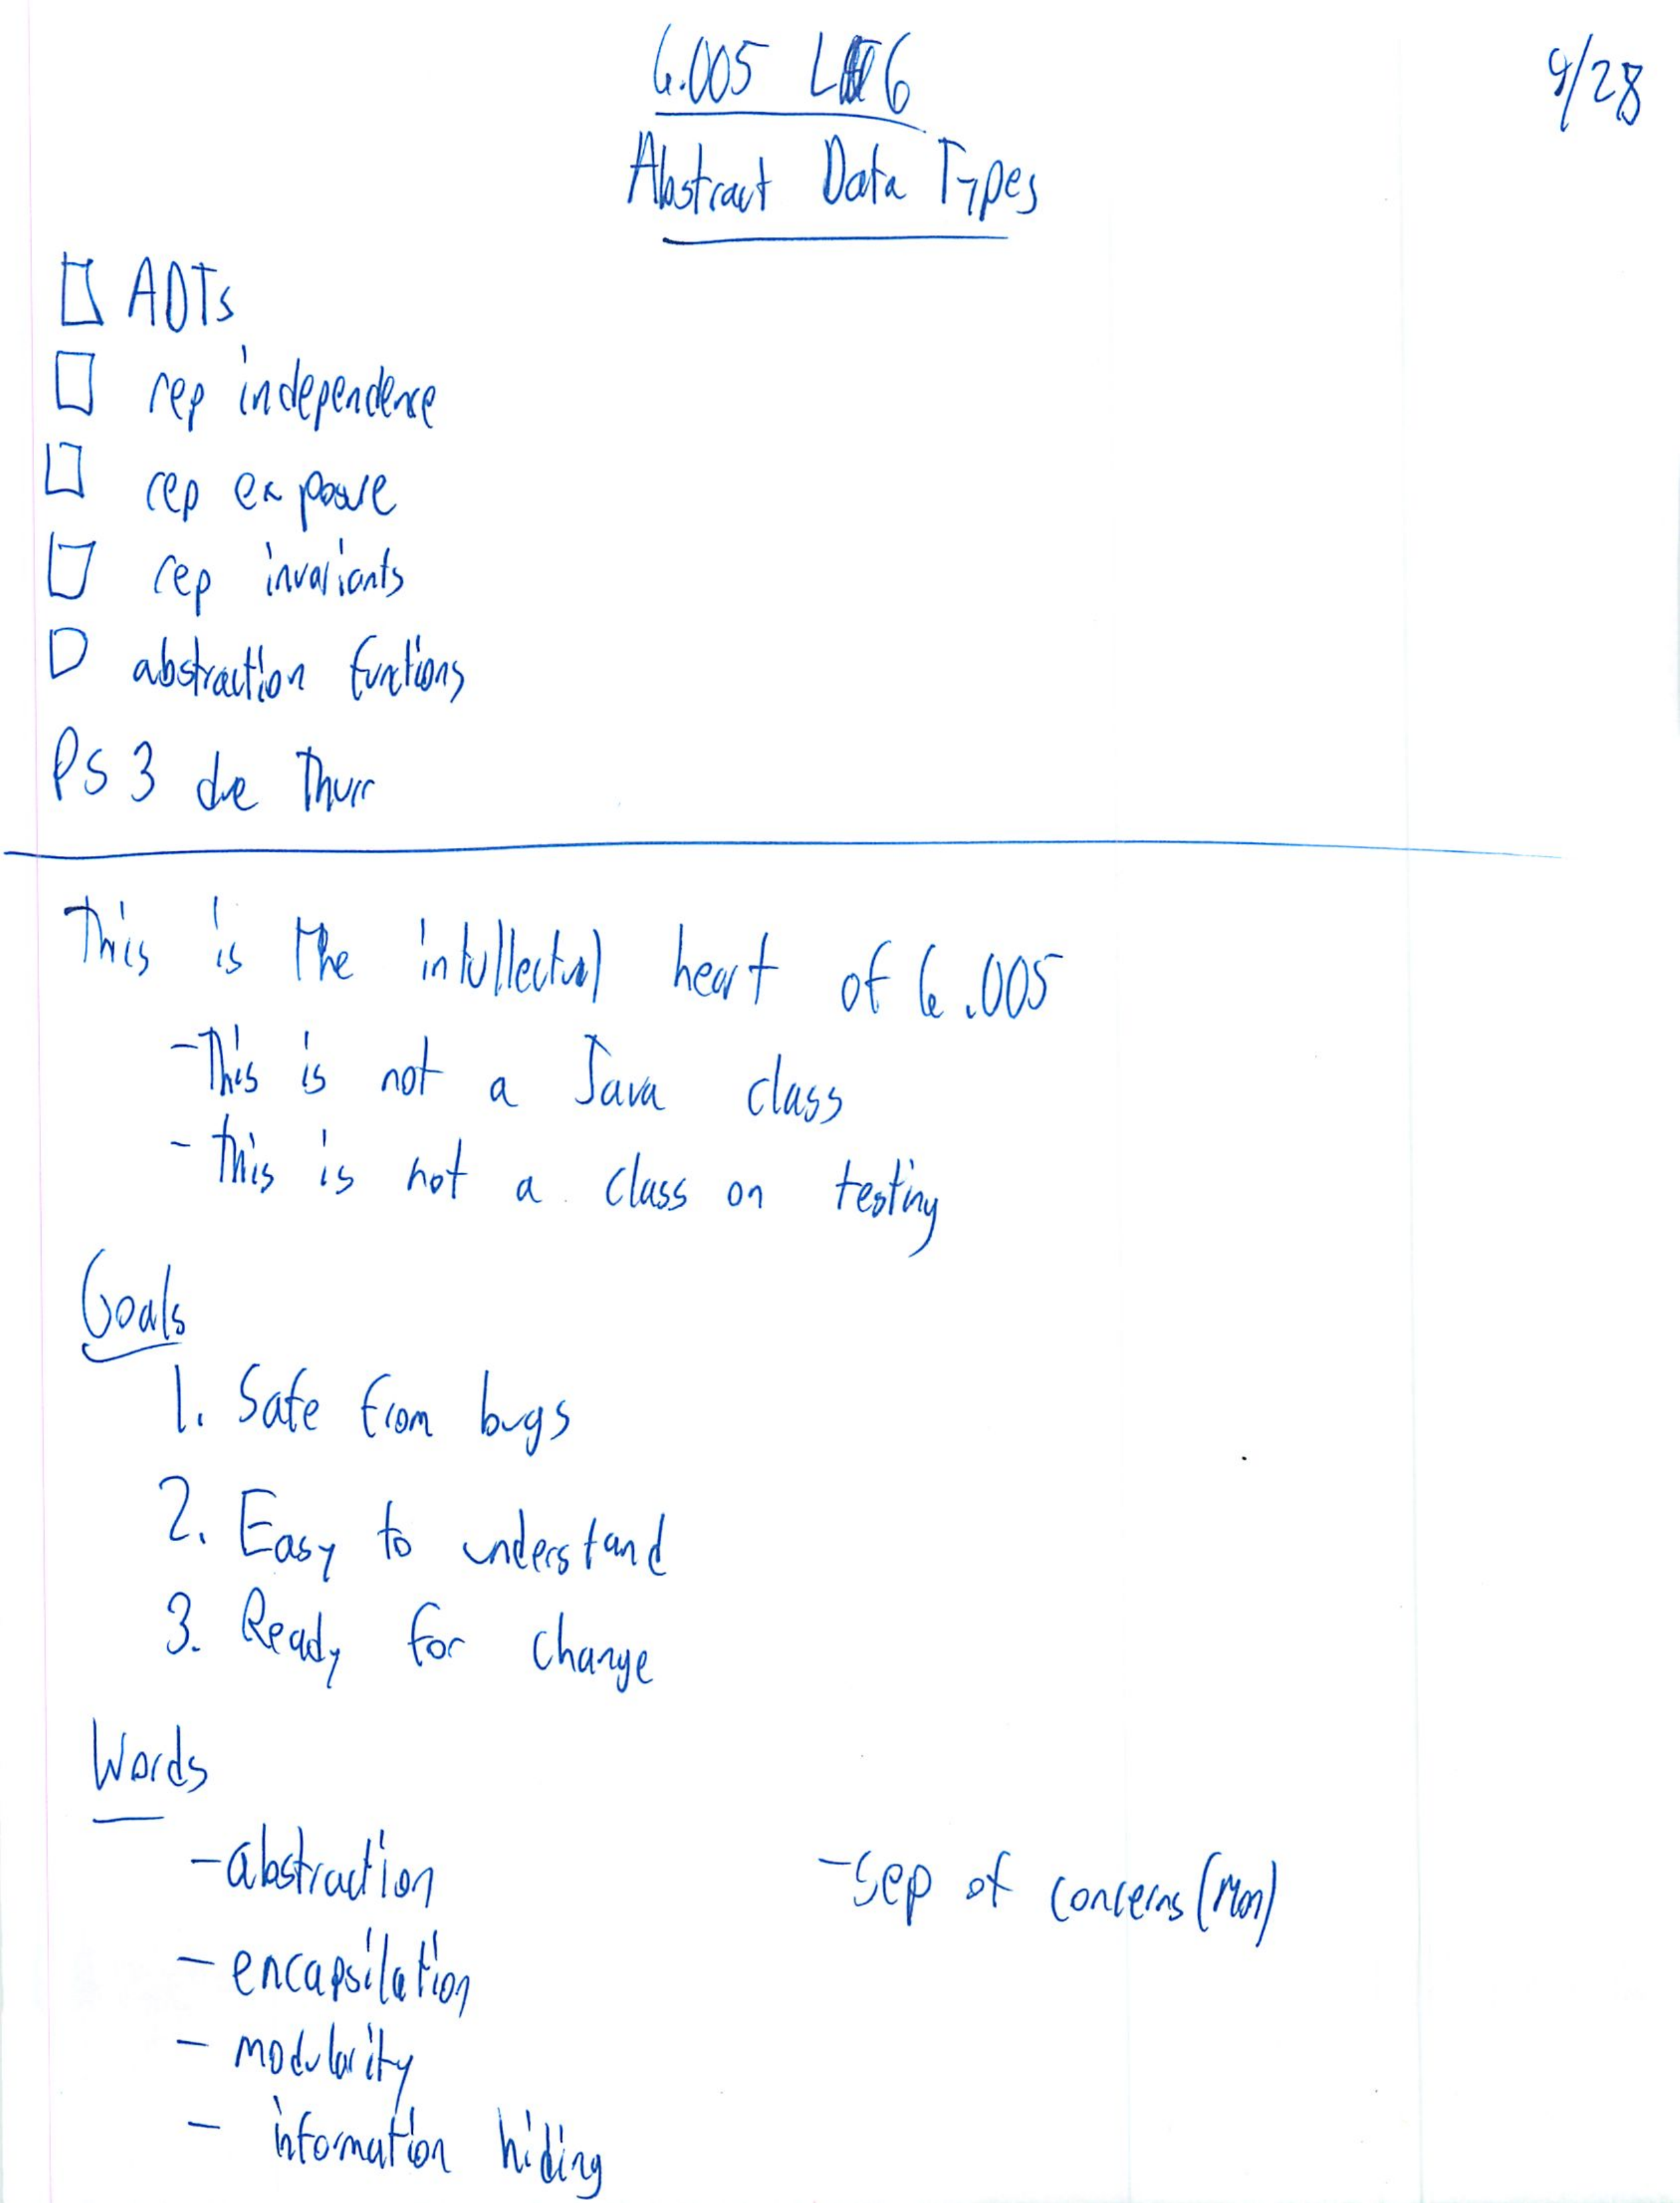 6.005 L6
9/28
Abstract Data Types
ADTs
rep independence
rep exposure
rep invariants
abstraction functions
PS 3 due Thur
This is the intullectual heart of 6.005
- This is not a Java class
- this is not a class on testing
Goals
1. Safe from bugs
2. Easy to understand
3. Ready for change
Words
- abstraction
- sep of concerns (Mon)
- encapsilation
- modularity
- information hiding